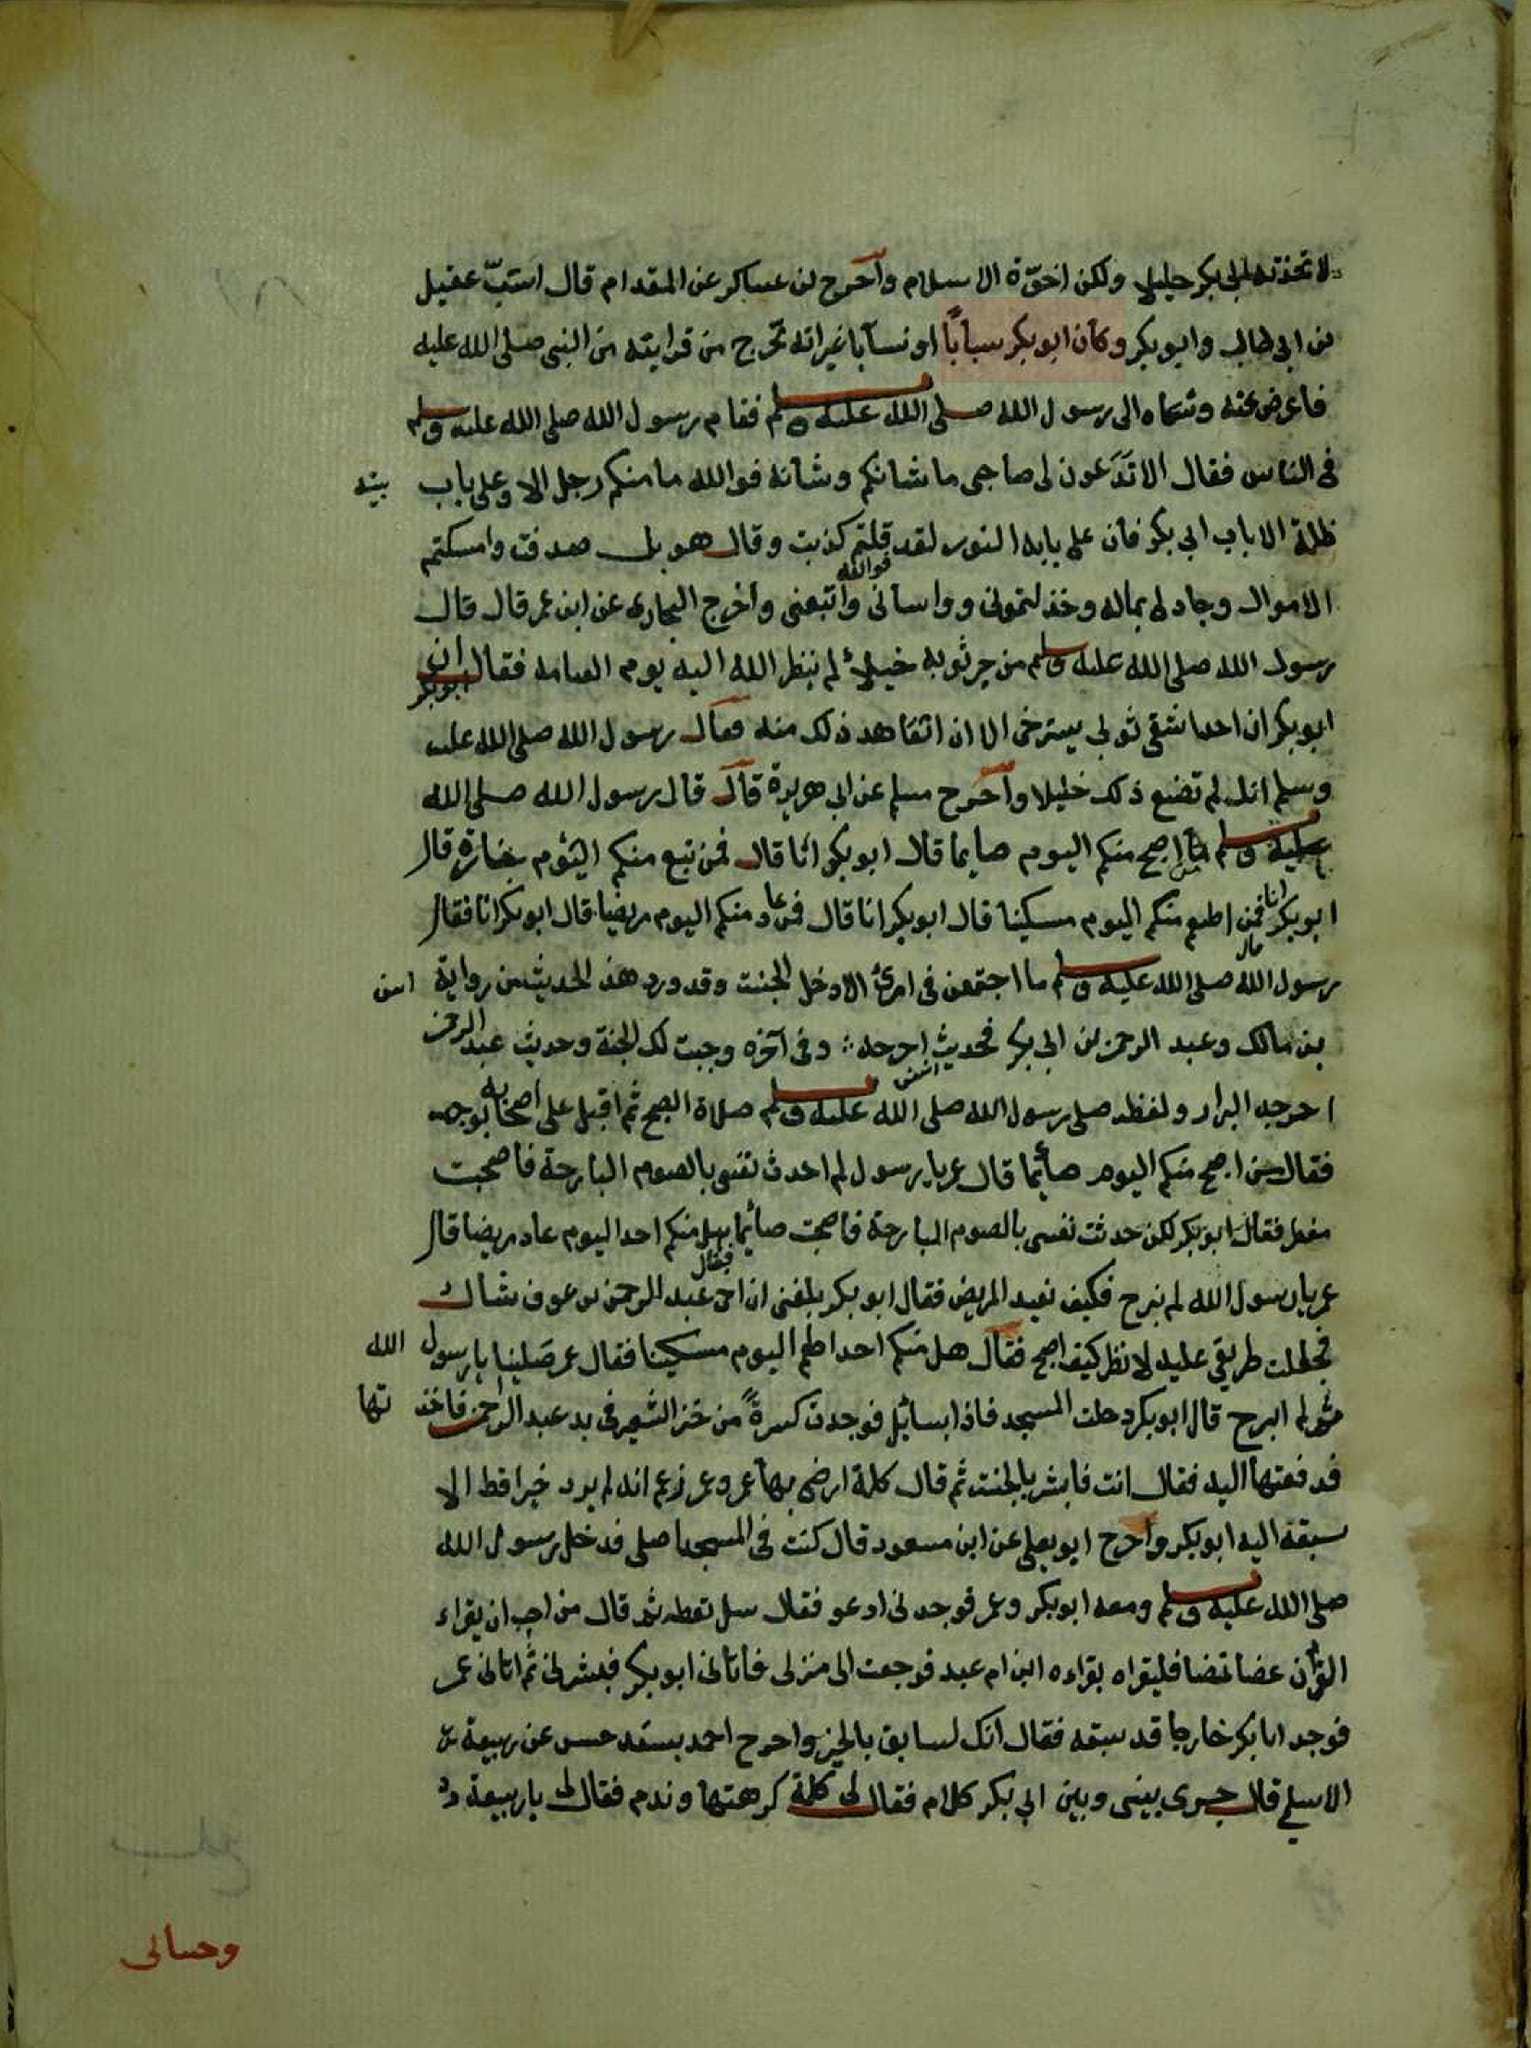 لاتخذته ابي بكر خليلا ولكن اخوّة الاسلام وآخرج ابن عساكر عن المقدام قال استبّ عقيل
بن ابي طالب وابوبكر وكان ابوبكر سباباً او نسآبا غيرانه تحرج من قرابته من النبي صلى الله عليه
فاعرض عنه وشكاه الى رسول الله صلى الله عليه وسلم فقام رسول الله صلى الله عليه وسلم
في الناس فقال الا تدَعون لي صاحبي ما شانكم وشانه فوالله ما منكم رجل الا وعلى باب بيته
ظلمة الا باب ابي بكر فان على بابه النور لقد قلتم كذبت وقال هو بل صدقت وامسكتم
فوالله
الاموال وجاد لي بماله وخذلتموني وواساني واتبعني وأخرج البخاري عن ابن عمر قال قال
رسول الله صلى الله عليه وسلم من جر ثوبه خيلاء لم ينظر الله اليه يوم القيامة فقال ابوبكر ان
ابوبكر ان احد شقي ثوبي يسترخي الا ان اتعاهد ذلك منه فقال رسول الله صلى الله عليه
وسلم انك لم تصنع ذلك خليلا وآخرج مسلم عن ابي هريرة قال قال رسول الله صلى الله
عليه وسلم من اصبح منكم اليوم صايما قال ابوبكر انا قال فمن تبع منكم اليوم جنازة قال
ابوبكر انا قال فمن اطعم منكم اليوم مسكينا قال ابوبكر انا قال فمن عاد منكم اليوم مريضا قال ابوبكر انا فقال
رسول الله صلى الله عليه وسلم ما اجتمعن في امرئ الا دخل الجنت وقد ورد هذ الحديث من رواية انس
بن مالك وعبد الرحمن بن ابي بكر فحديث انس اخرجه وفي آخره وجبت لك الجنة وحديث عبد الرحمن
اخرجه البزار ولفظه صلى رسول الله صلى الله عليه وسلم صلاة الصبح ثم اقبل على اصحابه بوجهه
فقال من اصبح منكم اليوم صائما قال عمر يا رسول لم احدث نفسي بالصوم البارحة فاصبحت
مفطر فقال ابوبكر لكن حدثت نفسي بالصوم البارحة فاصبحت صائما فقال هل منكم احد اليوم عاد مريضا قال
عمر يا رسول الله لم نبرح فكيف نعيد المريض فقال ابوبكر بلغني ان اخي عبد الرحمن بن عوف شاك
فجعلت طريقي عليه لانظر كيف اصبح فقال هل منكم احد اطعم اليوم مسكينا فقال عمر صلينا يا رسول الله
ثم لم ابرح قال ابوبكر دخلت المسجد فاذا بسائل فوجدت كسرةً من خبز الشعير في يد عبد الرحمن فاخذ تها
فدفعتها اليه فقال انت فابشر بالجنت ثم قال كلمة ارضى بها عمر وعمر زعم انه لم يرد خيرا قط الا
سبقه اليه ابوبكر وآخرج ابو يعلى عن ابن مسعود قال كنت في المسجد اصلي فدخل رسول الله
صلى الله عليه وسلم ومعه ابوبكر وعمر فوجدني ادعو فقال سل تعطه ثم قال من احب ان يقراء
القرآن غضا فليقراه بقراءه ابن ام عبد فرجعت الى منزلي فاتاني ابوبكر فبشرني ثم اتاني عمر
فوجد ابا بكر خارجا قد سبقه فقال انك لسابق بالخير واخرج احمد بسند حسن عن ربيعة
الاسلمي قال جرى بيني وبين ابي بكر كلام فقال لي كلمة كرهتها وندم فقال لي يا ربيعة رد